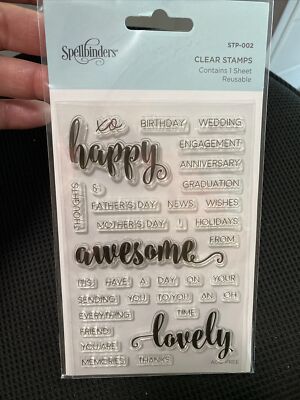 Spellbinders®
STP-002
CLEAR STAMPS
Contains 1 Sheet
Reusable
xo BIRTHDAY WEDDING
happy ENGAGEMENT
ANNIVERSARY
THOUGHTS & GRADUATION
FATHER'S DAY NEWS WISHES
MOTHER'S DAY ! HOLIDAYS
awesome FROM
IT'S HAVE A DAY ON YOUR
SENDING YOU TO YOU AN OH
EVERYTHING TIME
FRIEND lovely
YOU ARE
MEMORIES THANKS